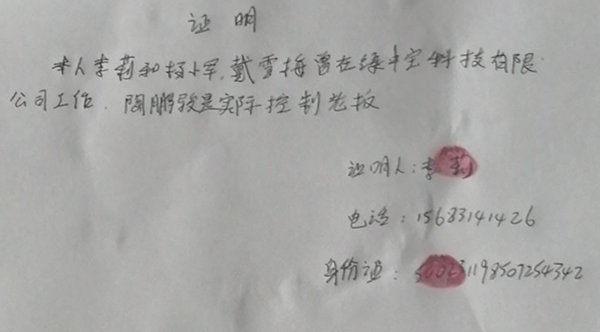 证明
本人李莉和杨小军,戴雪梅曾在绿中宝科技有限
公司工作.陶鹏骏是实际控制老板
证明人:李莉
电话:15683141426
身份证:500231198507254342